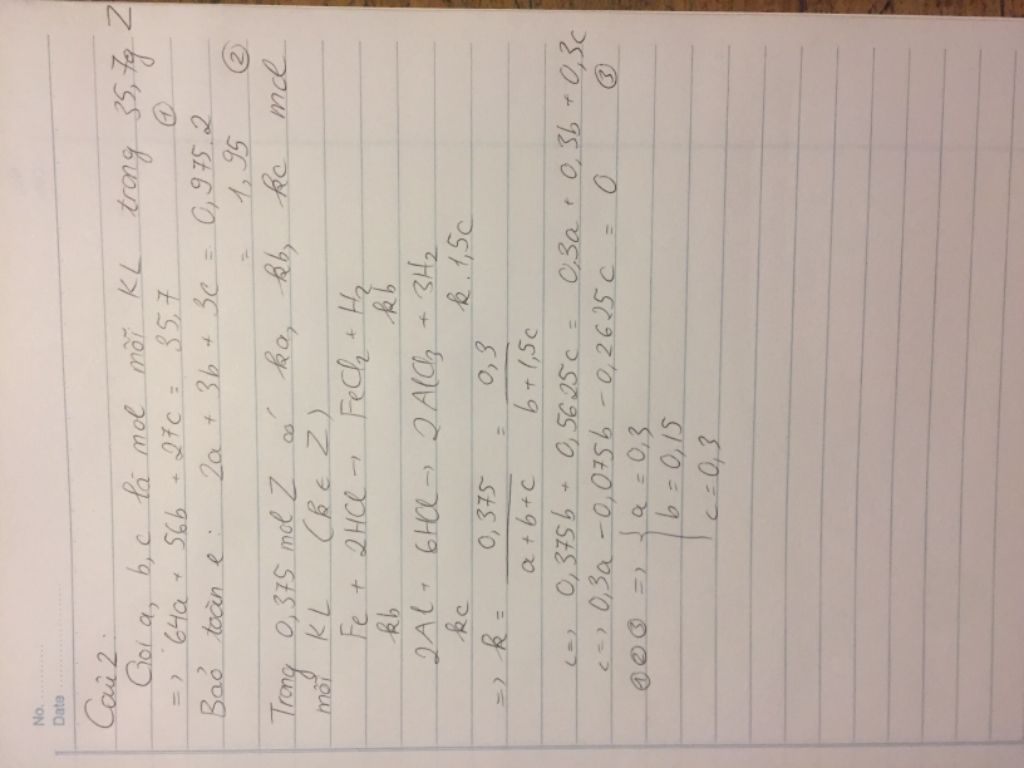 No. ..............
Date ..............
Câu 2:
Gọi a, b, c là mol mỗi KL trong 35,7g Z
=> 64a + 56b + 27c = 35,7 ①
Bảo toàn e: 2a + 3b + 3c = 0,975.2
= 1,95 ②
Trong 0,375 mol Z có ka, kb, kc mol
mỗi KL (k ∈ Z)
Fe + 2HCl → FeCl2 + H2
kb kb
2Al + 6HCl → 2AlCl3 + 3H2
kc k.1,5c
=> k = 0,375 / (a + b + c) = 0,3 / (b + 1,5c)
<=> 0,375b + 0,5625c = 0,3a + 0,3b + 0,3c
<=> 0,3a - 0,075b - 0,2625c = 0 ③
①②③ => { a = 0,3
b = 0,15
c = 0,3